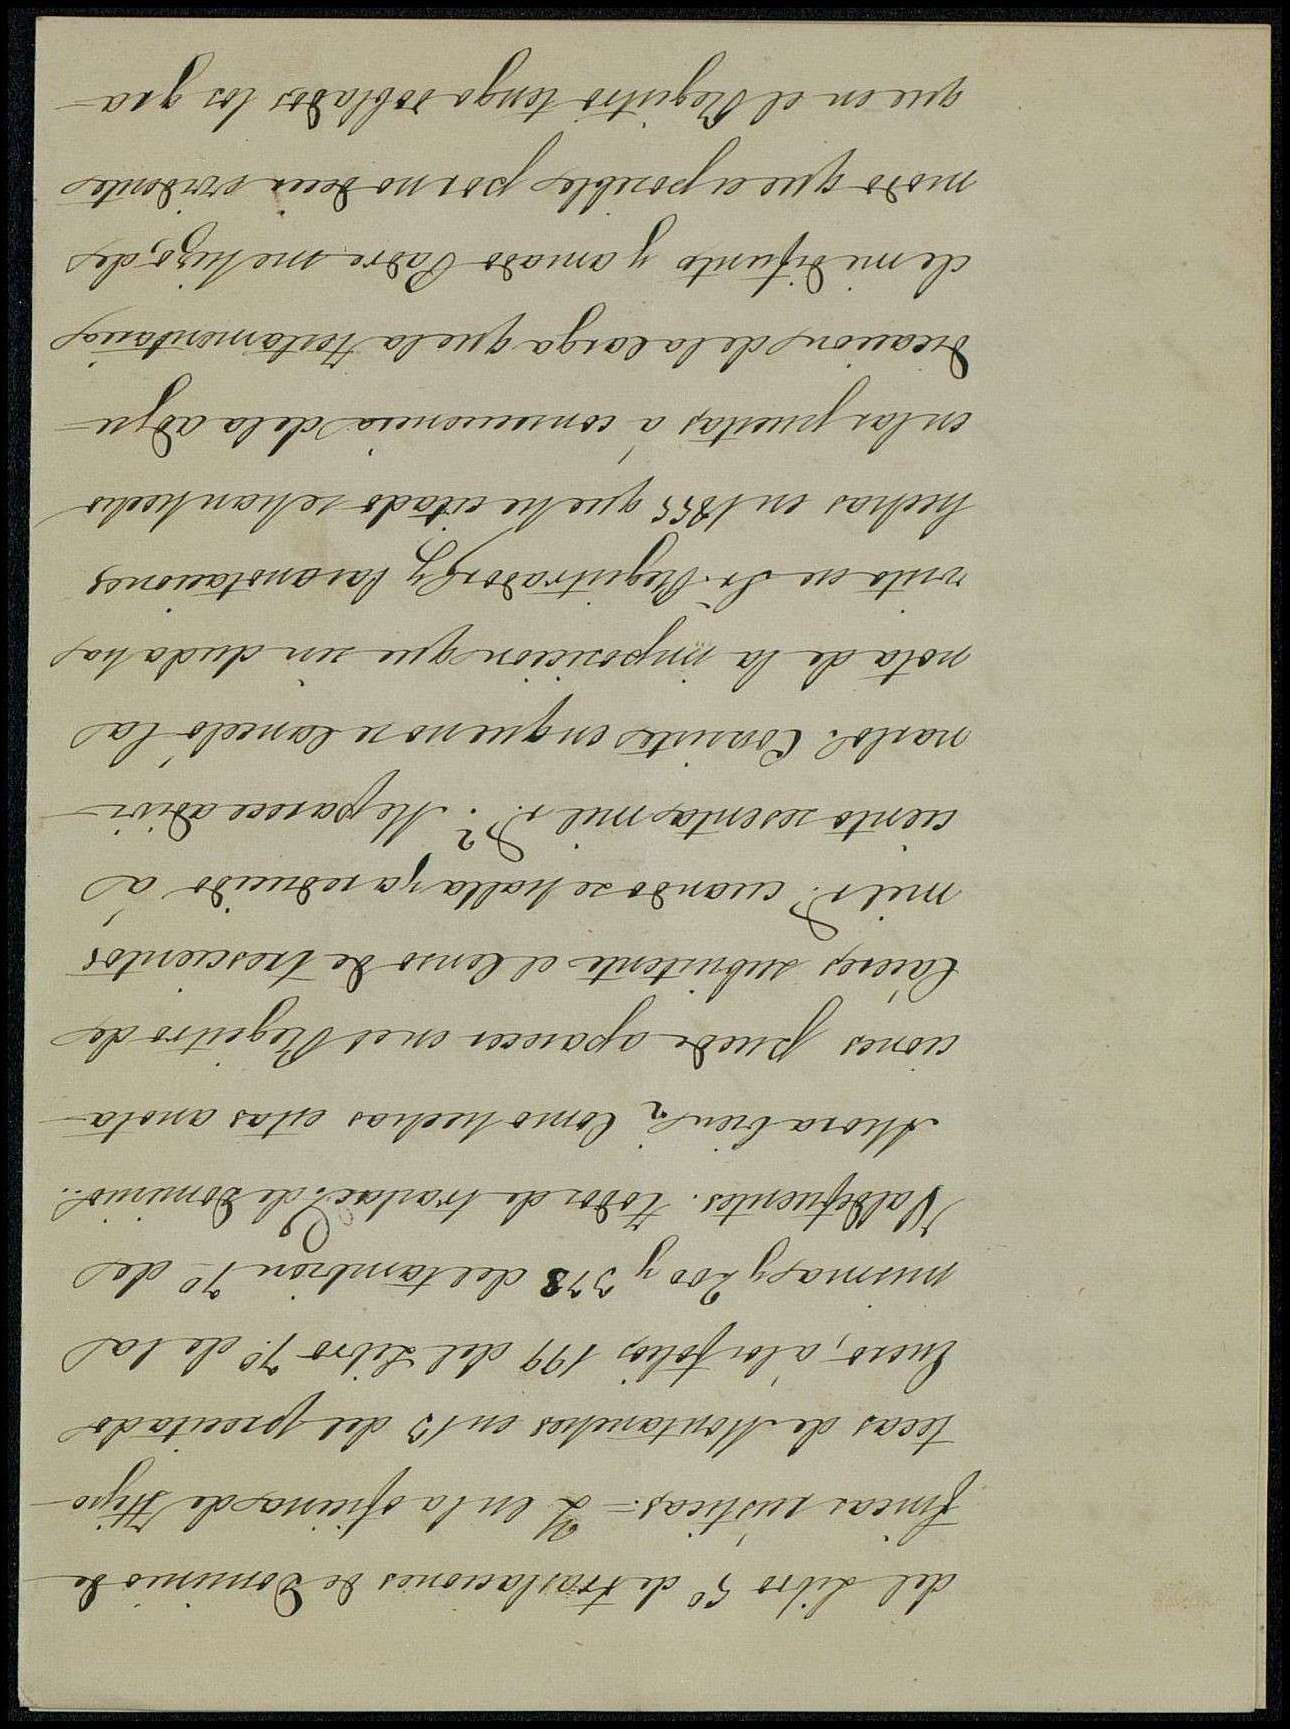 del Libro 5º de traslaciones de Dominio de
fincas rústicas.= Y en la oficina de Hipo-
tecas de Montanches en 13 del precitado
Enero, á los folios 199 del Libro 7º de la
misma y 200 y 378 del tambien 7º de
Valdefuentes. todos de traslacⁿ de Dominio..
Ahora bien ¿Como hechas estas anota-
ciones puede aparecer en el Registro de
Cáceres subsistente el Censo de trescientos
mil rˢ. cuando se halla ya reducido á
ciento sesenta mil rˢ? Me parece adivi-
narlo. Consiste en que no se canceló la
nota de la imposicion que sin duda ha
visto ese Sr. Registrador y las anotaciones
hechas en 1855 que he citado se han hecho
en las puestas á consecuencia de la adju-
dicacion de la carga que la Testamentaria
de mi difunto y amado Padre me hizo, de
modo que es posible por no decir evidente
que en el Registro tengo doblados los gra-